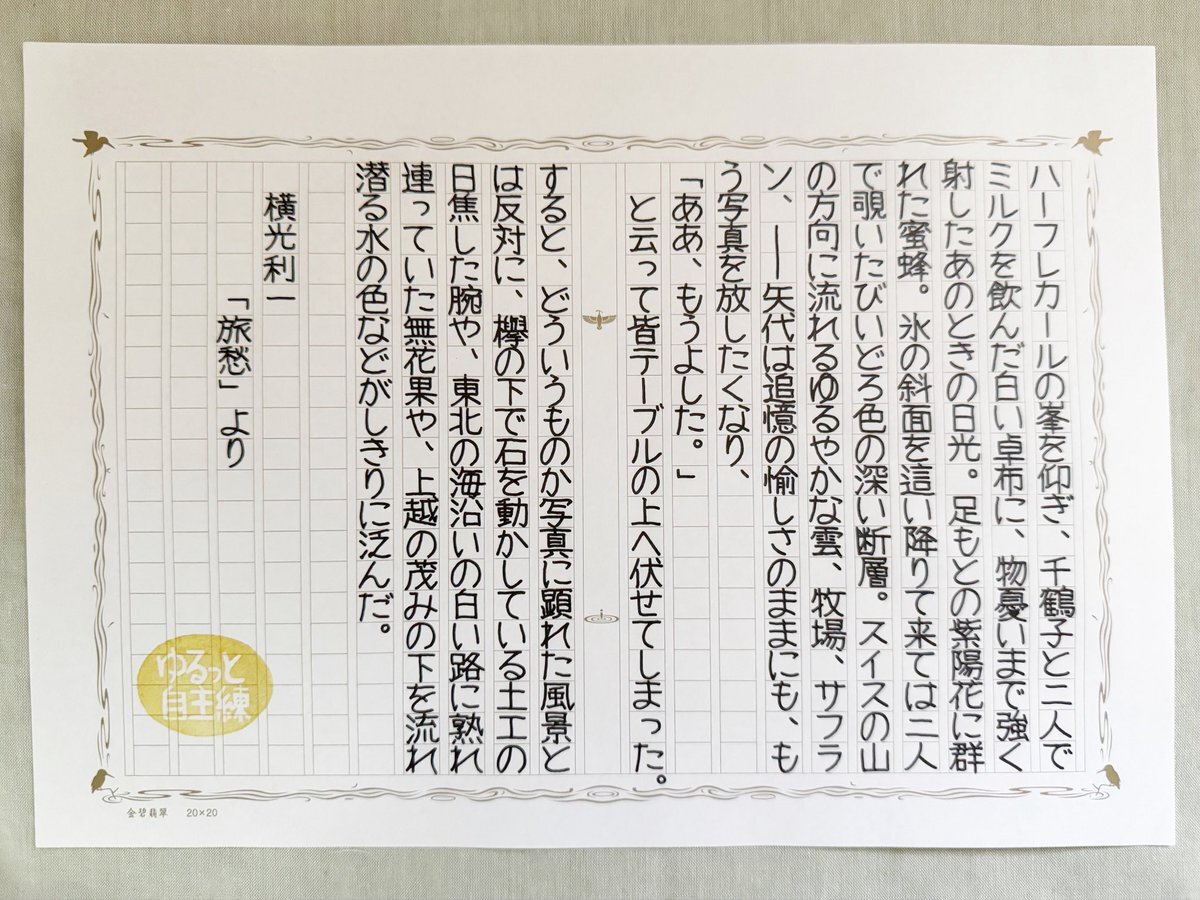 ハーフレカールの峯を仰ぎ、千鶴子と二人で
ミルクを飲んだ白い卓布に、物憂いまで強く
射したあのときの日光。足もとの紫陽花に群
れた蜜蜂。氷の斜面を這い降りて来ては二人
で覗いたびいどろ色の深い断層。スイスの山
の方向に流れるゆるやかな雲、牧場、サフラ
ン、――矢代は追憶の愉しさのままにも、も
う写真を放したくなり、
「ああ、もうよした。」
と云って皆テーブルの上へ伏せてしまった。
すると、どういうものか写真に顕れた風景と
は反対に、欅の下で石を動かしている土工の
日焦した腕や、東北の海沿いの白い路に熟れ
連っていた無花果や、上越の茂みの下を流れ
潜る水の色などがしきりに泛んだ。
横光利一
「旅愁」より
ゆるっと
自主練
金碧翡翠 20×20